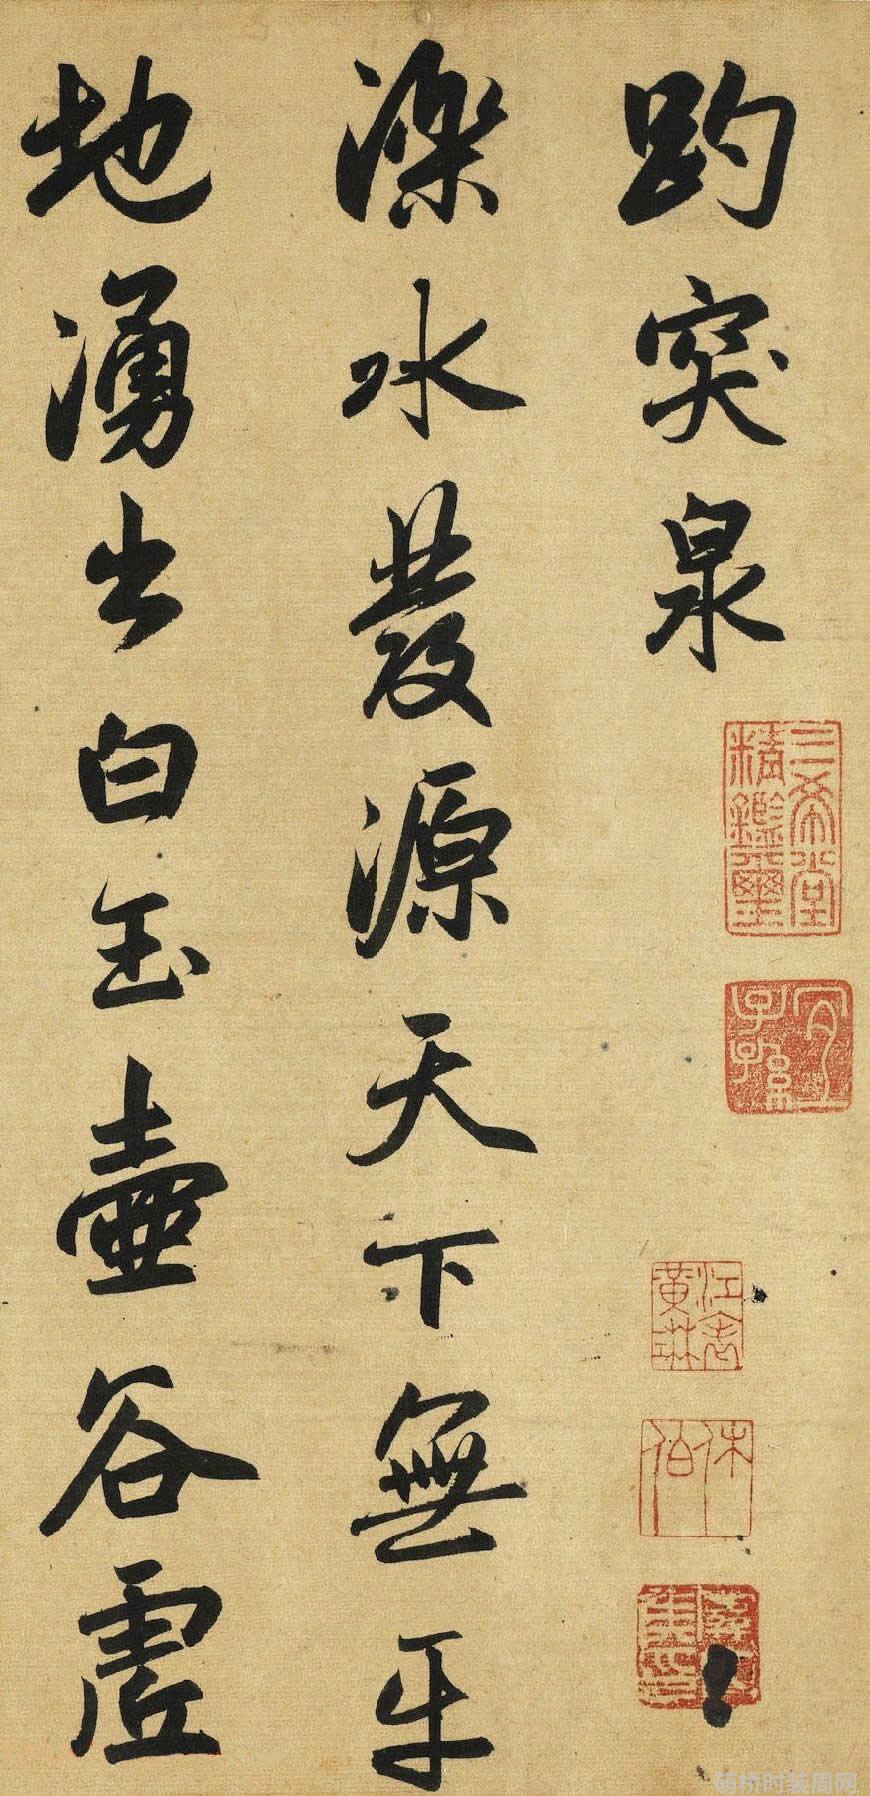 趵突泉
濼水發源天下無平
地湧出白玉壺谷虛
三希堂
精鑑璽
宜
子孫
江表
黃琳
休
伯
萌桥时装周网